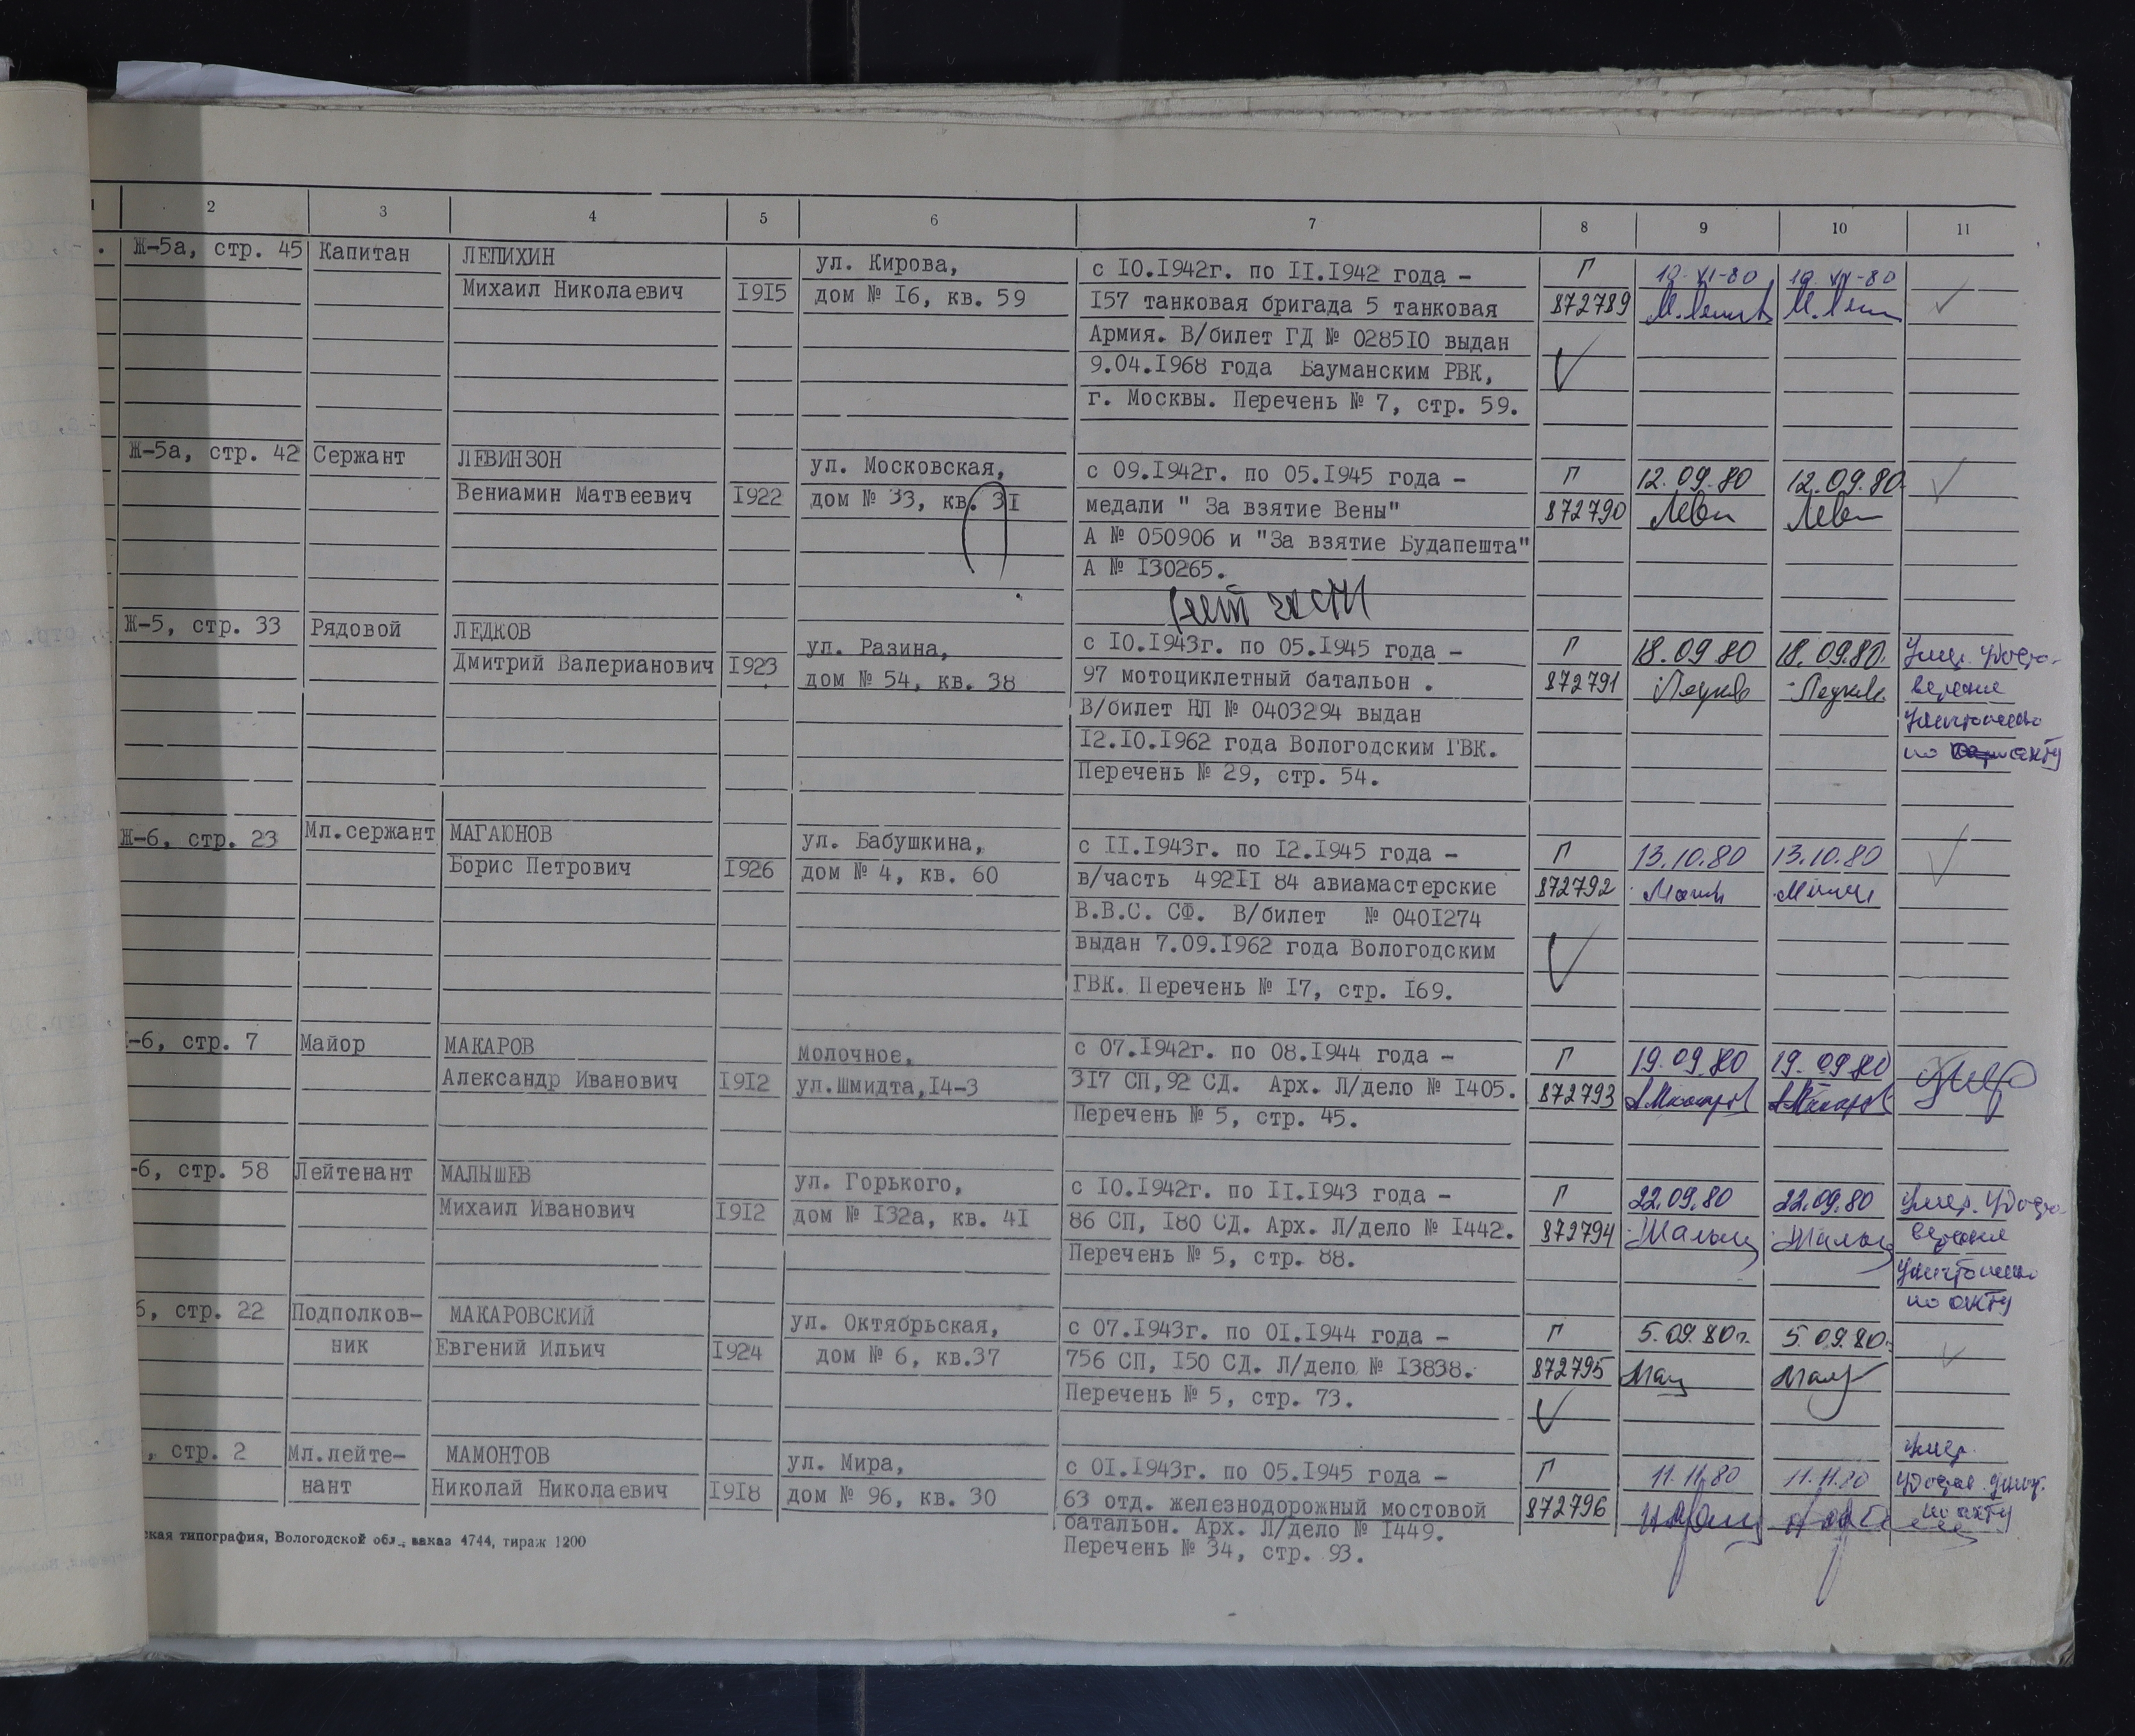 2 3 4 5 6 7 8 9 10 11
Ж-5а, стр. 45 Капитан ЛЕПИХИН ул. Кирова, с 10.1942г. по 11.1942 года - Г
Михаил Николаевич 1915 дом № 16, кв. 59 157 танковая бригада 5 танковая 872789
Армия. В/билет ГД № 028510 выдан
9.04.1968 года Бауманским РВК,
г. Москвы. Перечень № 7, стр. 59.
Ж-5а, стр. 42 Сержант ЛЕВИНЗОН ул. Московская, с 09.1942г. по 05.1945 года - Г 12.09.80 12.09.80
Вениамин Матвеевич 1922 дом № 33, кв. 31 медали " За взятие Вены" 872790 Леви Леви
А № 050906 и "За взятие Будапешта"
А № 130265.
нет части
Ж-5, стр. 33 Рядовой ЛЕДКОВ ул. Разина, с 10.1943г. по 05.1945 года - Г 18.09.80 18.09.80. Умер. Удосто-
Дмитрий Валерианович 1923 дом № 54, кв. 38 97 мотоциклетный батальон . 872791 Ледков Ледков верение
В/билет НЛ № 0403294 выдан уничтожено
12.10.1962 года Вологодским ГВК. по акту
Перечень № 29, стр. 54.
Ж-6, стр. 23 Мл.сержант МАГАЮНОВ ул. Бабушкина, с 11.1943г. по 12.1945 года - Г 13.10.80 13.10.80
Борис Петрович 1926 дом № 4, кв. 60 в/часть 49211 84 авиамастерские 872792
В.В.С. СФ. В/билет № 0401274
выдан 7.09.1962 года Вологодским
ГВК. Перечень № 17, стр. 169.
-6, стр. 7 Майор МАКАРОВ Молочное, с 07.1942г. по 08.1944 года - Г 19.09.80 19.09.80 умер
Александр Иванович 1912 ул.Шмидта,14-3 317 СП,92 СД. Арх. Л/дело № 1405. 872793 АМакаров АМакаров
Перечень № 5, стр. 45.
-6, стр. 58 Лейтенант МАЛЫШЕВ ул. Горького, с 10.1942г. по 11.1943 года - Г 22.09.80 22.09.80 Умер. Удосто-
Михаил Иванович 1912 дом № 132а, кв. 41 86 СП, 180 СД. Арх. Л/дело № 1442. 872794 Малыш Малыш верение
Перечень № 5, стр. 88. уничтожено
по акту
6, стр. 22 Подполков- МАКАРОВСКИЙ ул. Октябрьская, с 07.1943г. по 01.1944 года - Г 5.09.80г. 5.09.80г.
ник Евгений Ильич 1924 дом № 6, кв.37 756 СП, 150 СД. Л/дело № 13838. 872795
Перечень № 5, стр. 73.
, стр. 2 Мл.лейте- МАМОНТОВ ул. Мира, с 01.1943г. по 05.1945 года - Г 11.11.80 11.11.80 умер.
нант Николай Николаевич 1918 дом № 96, кв. 30 63 отд. железнодорожный мостовой 872796 удост. унич.
батальон. Арх. Л/дело № 1449. по акту
Перечень № 34, стр. 93.
ская типография, Вологодской обл., заказ 4744, тираж 1200